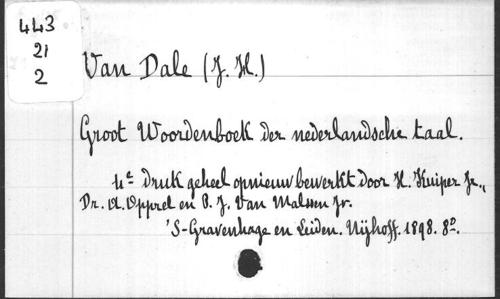 443
21
2
Van Dale (J. H.)
Groot Woordenboek der nederlandsche taal.
4e druk geheel opnieuw bewerkt door H. Kuiper Jr.,
Dr. A. Opprel en P. J. Van Malssen Jr.
'S-Gravenhage en Leiden. Nijhoff. 1898. 8o.